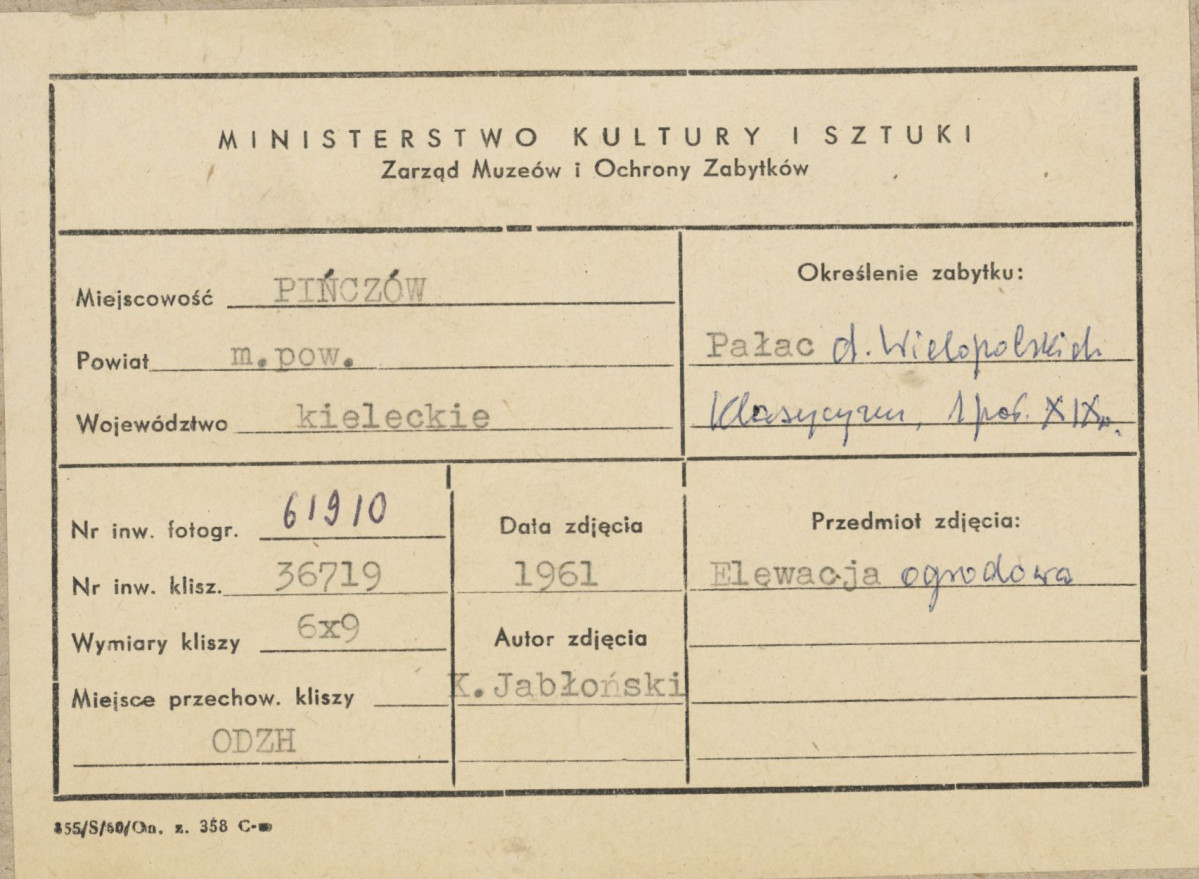 MINISTERSTWO KULTURY I SZTUKI
Zarząd Muzeów i Ochrony Zabytków
Miejscowość PIŃCZÓW
Powiat m.pow.
Województwo kieleckie
Określenie zabytku:
Pałac d. Wielopolskich
Klasycyzm, 1 poł. XIX w.
Nr inw. fotogr. 61910
Nr inw. klisz. 36719
Wymiary kliszy 6x9
Miejsce przechow. kliszy
ODZH
Data zdjęcia
1961
Autor zdjęcia
K.Jabłoński
Przedmiot zdjęcia:
Elewacja ogrodowa
z. 358